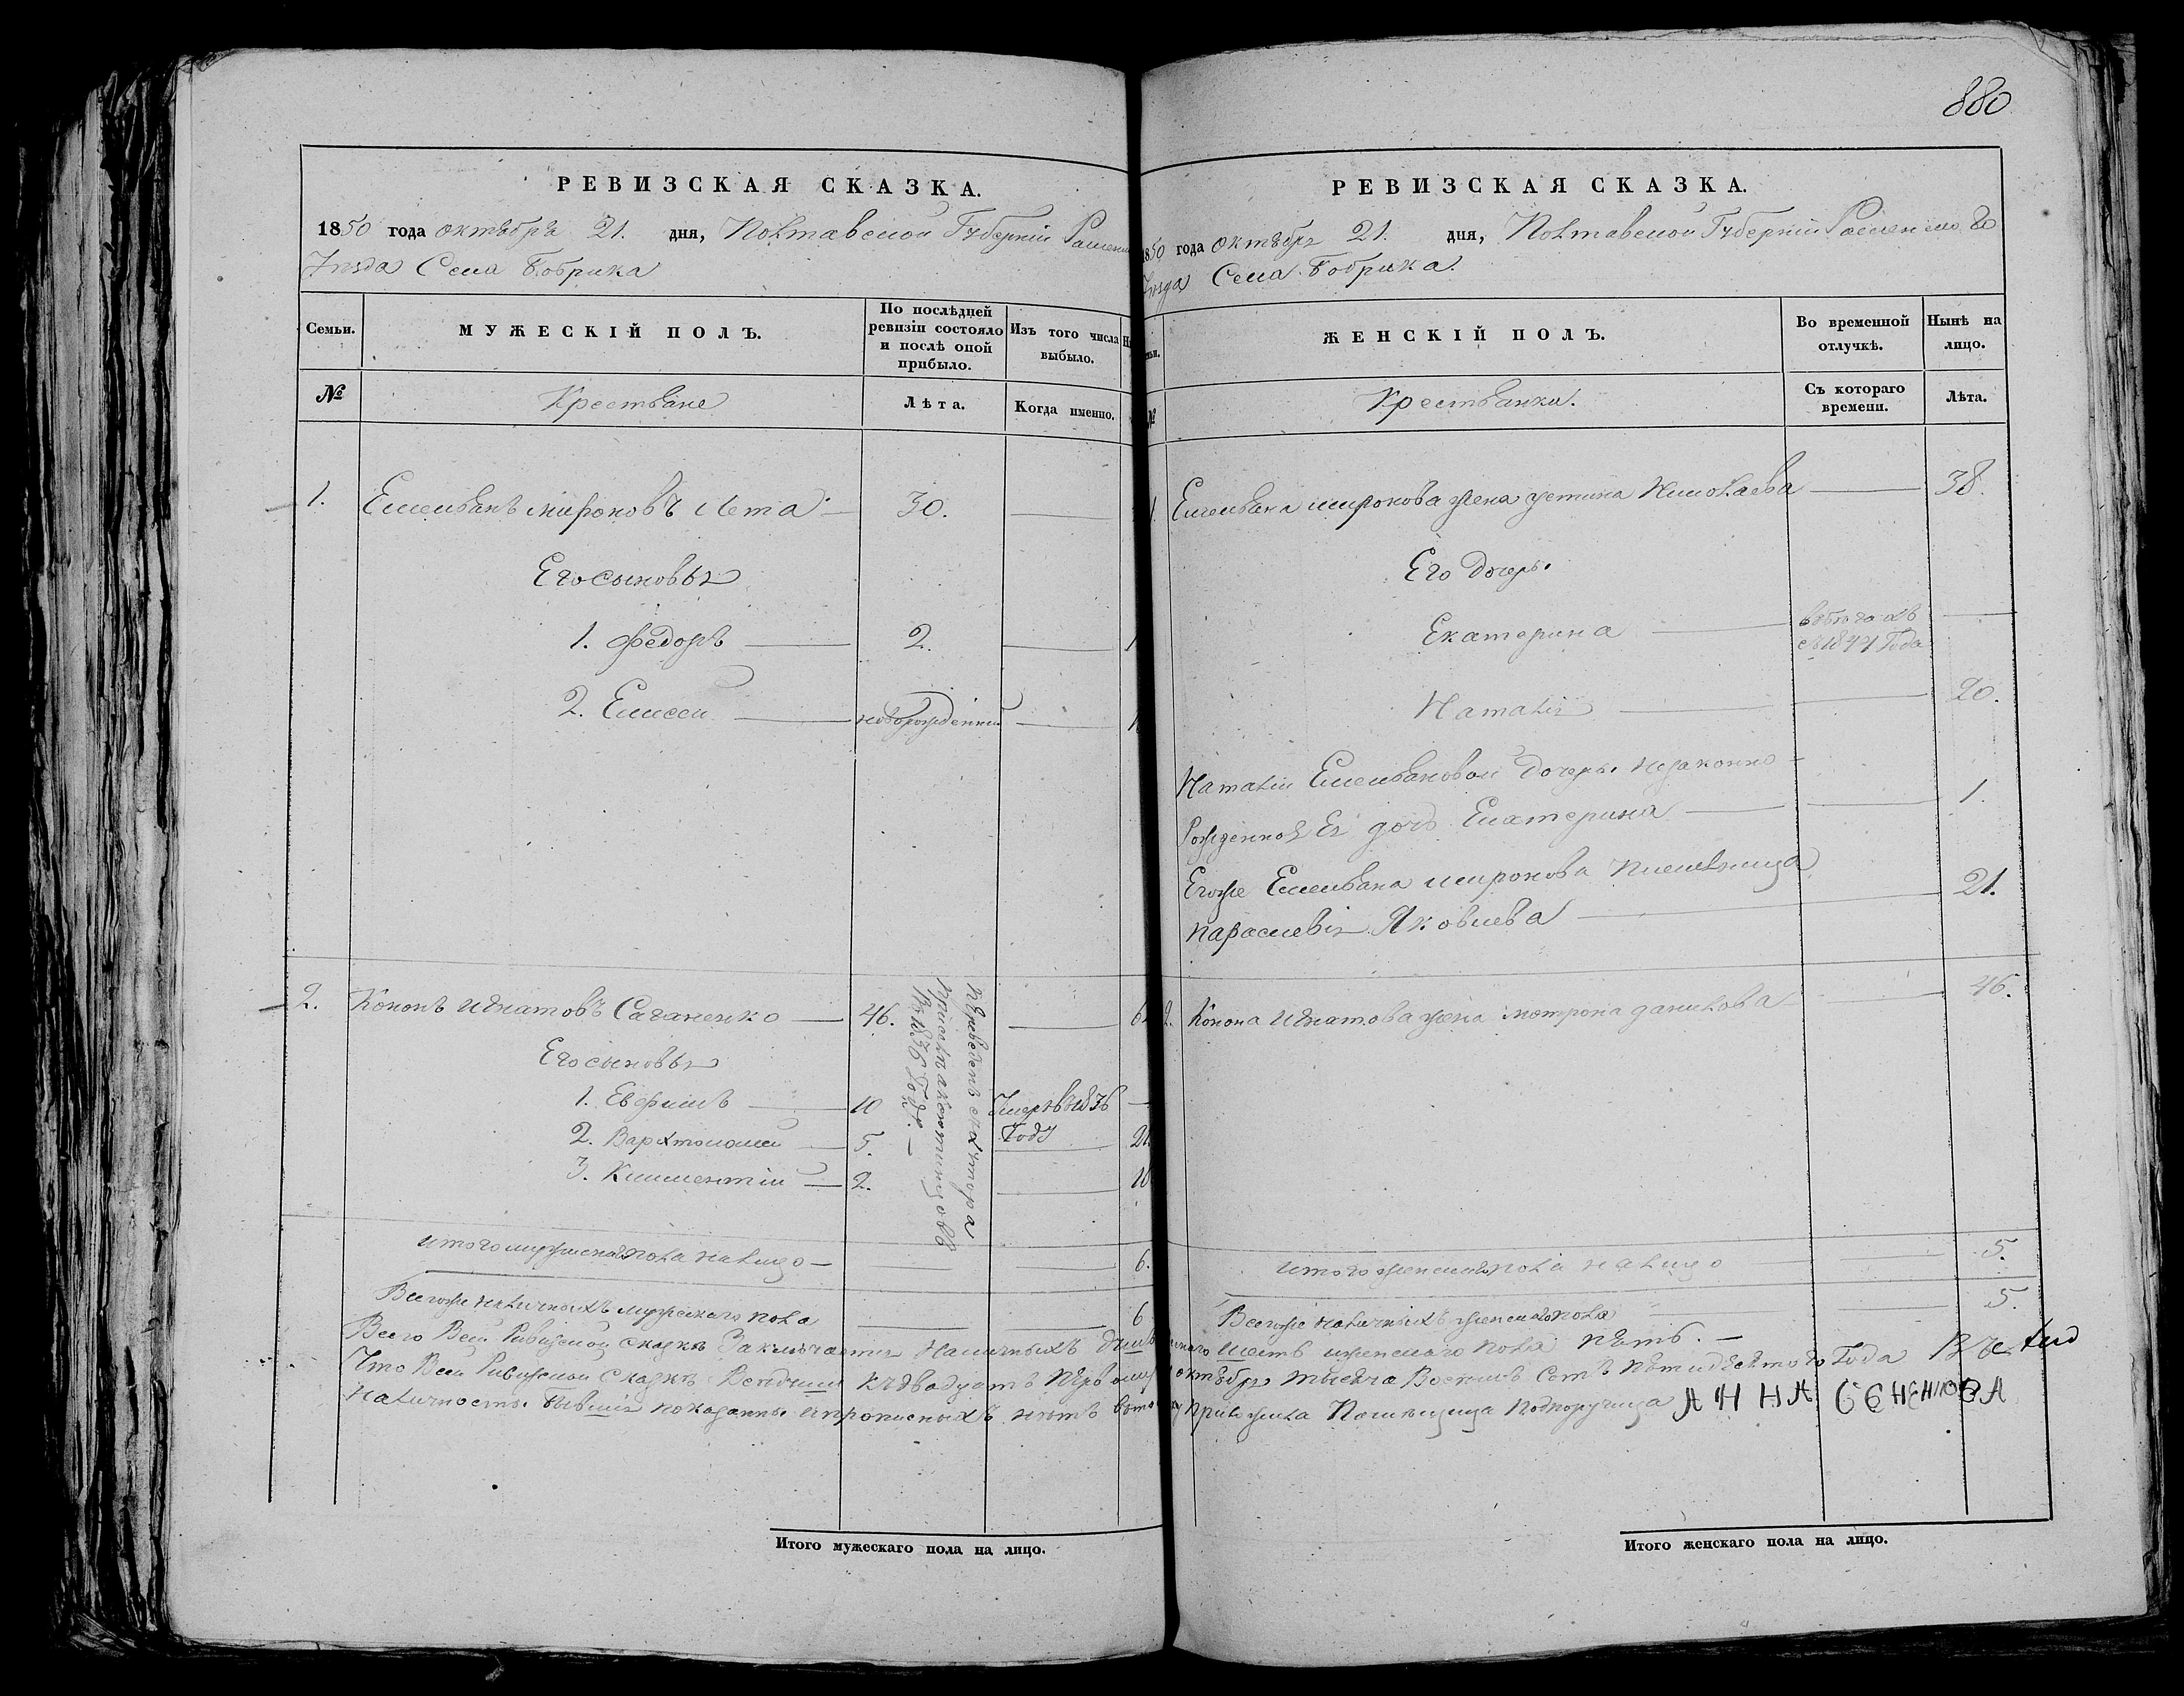 РЕВИЗСКАЯ СКАЗКА.
1850 года октября 21. дня, Полтавской Губерніи
Уезда Села Бобрика
Семьи.
МУЖЕСКІЙ ПОЛЪ.
По послѣдней ревизіи состояло и послѣ оной прибыло.
Изъ того числа выбыло.
№
Крестьяне
Лѣта.
Когда именно.
1. Емельянъ мироновъ 30.
Его сыновья
1. Федоръ 2.
2. Елисей новорожденный
2. Кононъ Игнатовъ Саганенко 46.
переведенъ
в 1836 Годе.
Его сыновья
1. Евфимъ 10 Умеръ в 1836
Году
2. Вархтоломей 5.
3. Климентій 2.
Итого мужеска пола налицо 6.
Всегоже наличныхъ мужескаго пола 6
Всего Всей Ревизской сказке Заключается Наличныхъ душъ
Что Всей Ревизской Сказке къ двадцать перв
наличности бывшія показанны и прописныхъ нетъ
Итого мужескаго пола на лицо.
880
РЕВИЗСКАЯ СКАЗКА.
1850 года октября 21. дня, Полтавской Губерніи
Уезда Села Бобрика.
ЖЕНСКІЙ ПОЛЪ.
Во временной отлучкѣ.
Нынѣ на лицо.
№
Крестьянки.
Съ котораго времени.
Лѣта.
Емельяна миронова жена устина Николаева 38.
Его дочери
Екатерина в бегахъ
съ 1844 Года
Наталія 20.
Наталіи Емельяновой дочери незаконно
Рожденная Ея дочь Екатерина 1.
Егоже Емельяна миронова племяница
параскевія Яковлева 21.
2. Конона Игнатова жена мотрона данилова 46.
итого женскаго пола налицо 5.
Всегоже наличныхъ женскаго пола 5.
шесть женскаго пола пять.
октября тысяча Восемь Сотъ пятидесятого Года В число
приложила Помещица Подпоручица АННА СЕМЕНОВА
Итого женскаго пола на лицо.